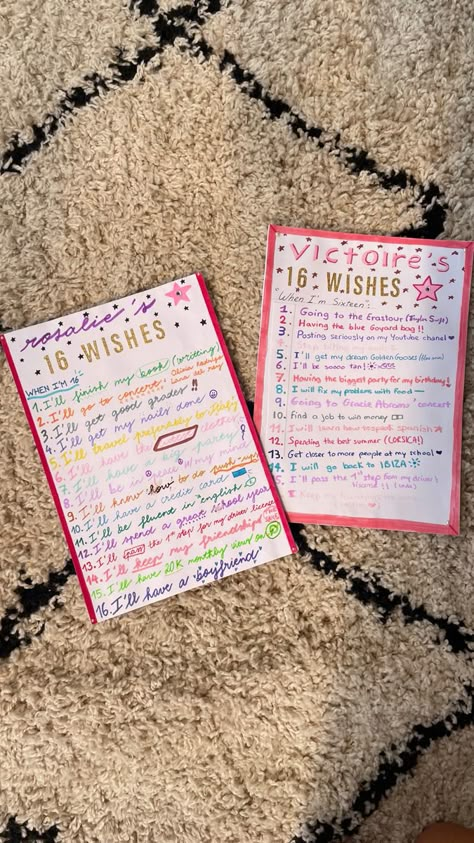 rosalie's
16 WISHES
WHEN I'M 16
1. I'll finish my book (writing)
2. I'll go to concerts Olivia Rodrigo Lana del rey
3. I'll get good grades!!
4. I'll get my nails done
5. I'll travel preferably to Italy
6. I'll have the clothes
7. I'll have a big party
8. I'll be in peace w/ my mind
9. I'll know how to do push-up
10. I'll have a credit card
11. I'll be fluent in "english"
12. I'll spend a great school year
13. I'll pass the 1st step for my driver licence
14. I'll keep my friendships
15. I'll have 20K monthly views on
16. I'll have a "boyfriend"
Victoire's
16 WISHES
"When I'm Sixteen":
1. Going to the Erastour (Taylor Swift)
2. Having the blue Goyard bag!!
3. Posting seriously on my Youtube channel
4. Stop
5. I'll get my dream Golden Gooses
6. I'll be soooo tan!
7. Having the biggest party for my birthday!
8. I will fix my problems with food
9. Going to Gracie Abrams' concert
10. Find a job to win money
11. I will learn how to speak spanish
12. Spending the best summer (CORSICA!)
13. Get closer to more people at my school
14. I will go back to IBIZA!
15. I'll pass the 1st step from my driver
Keep my